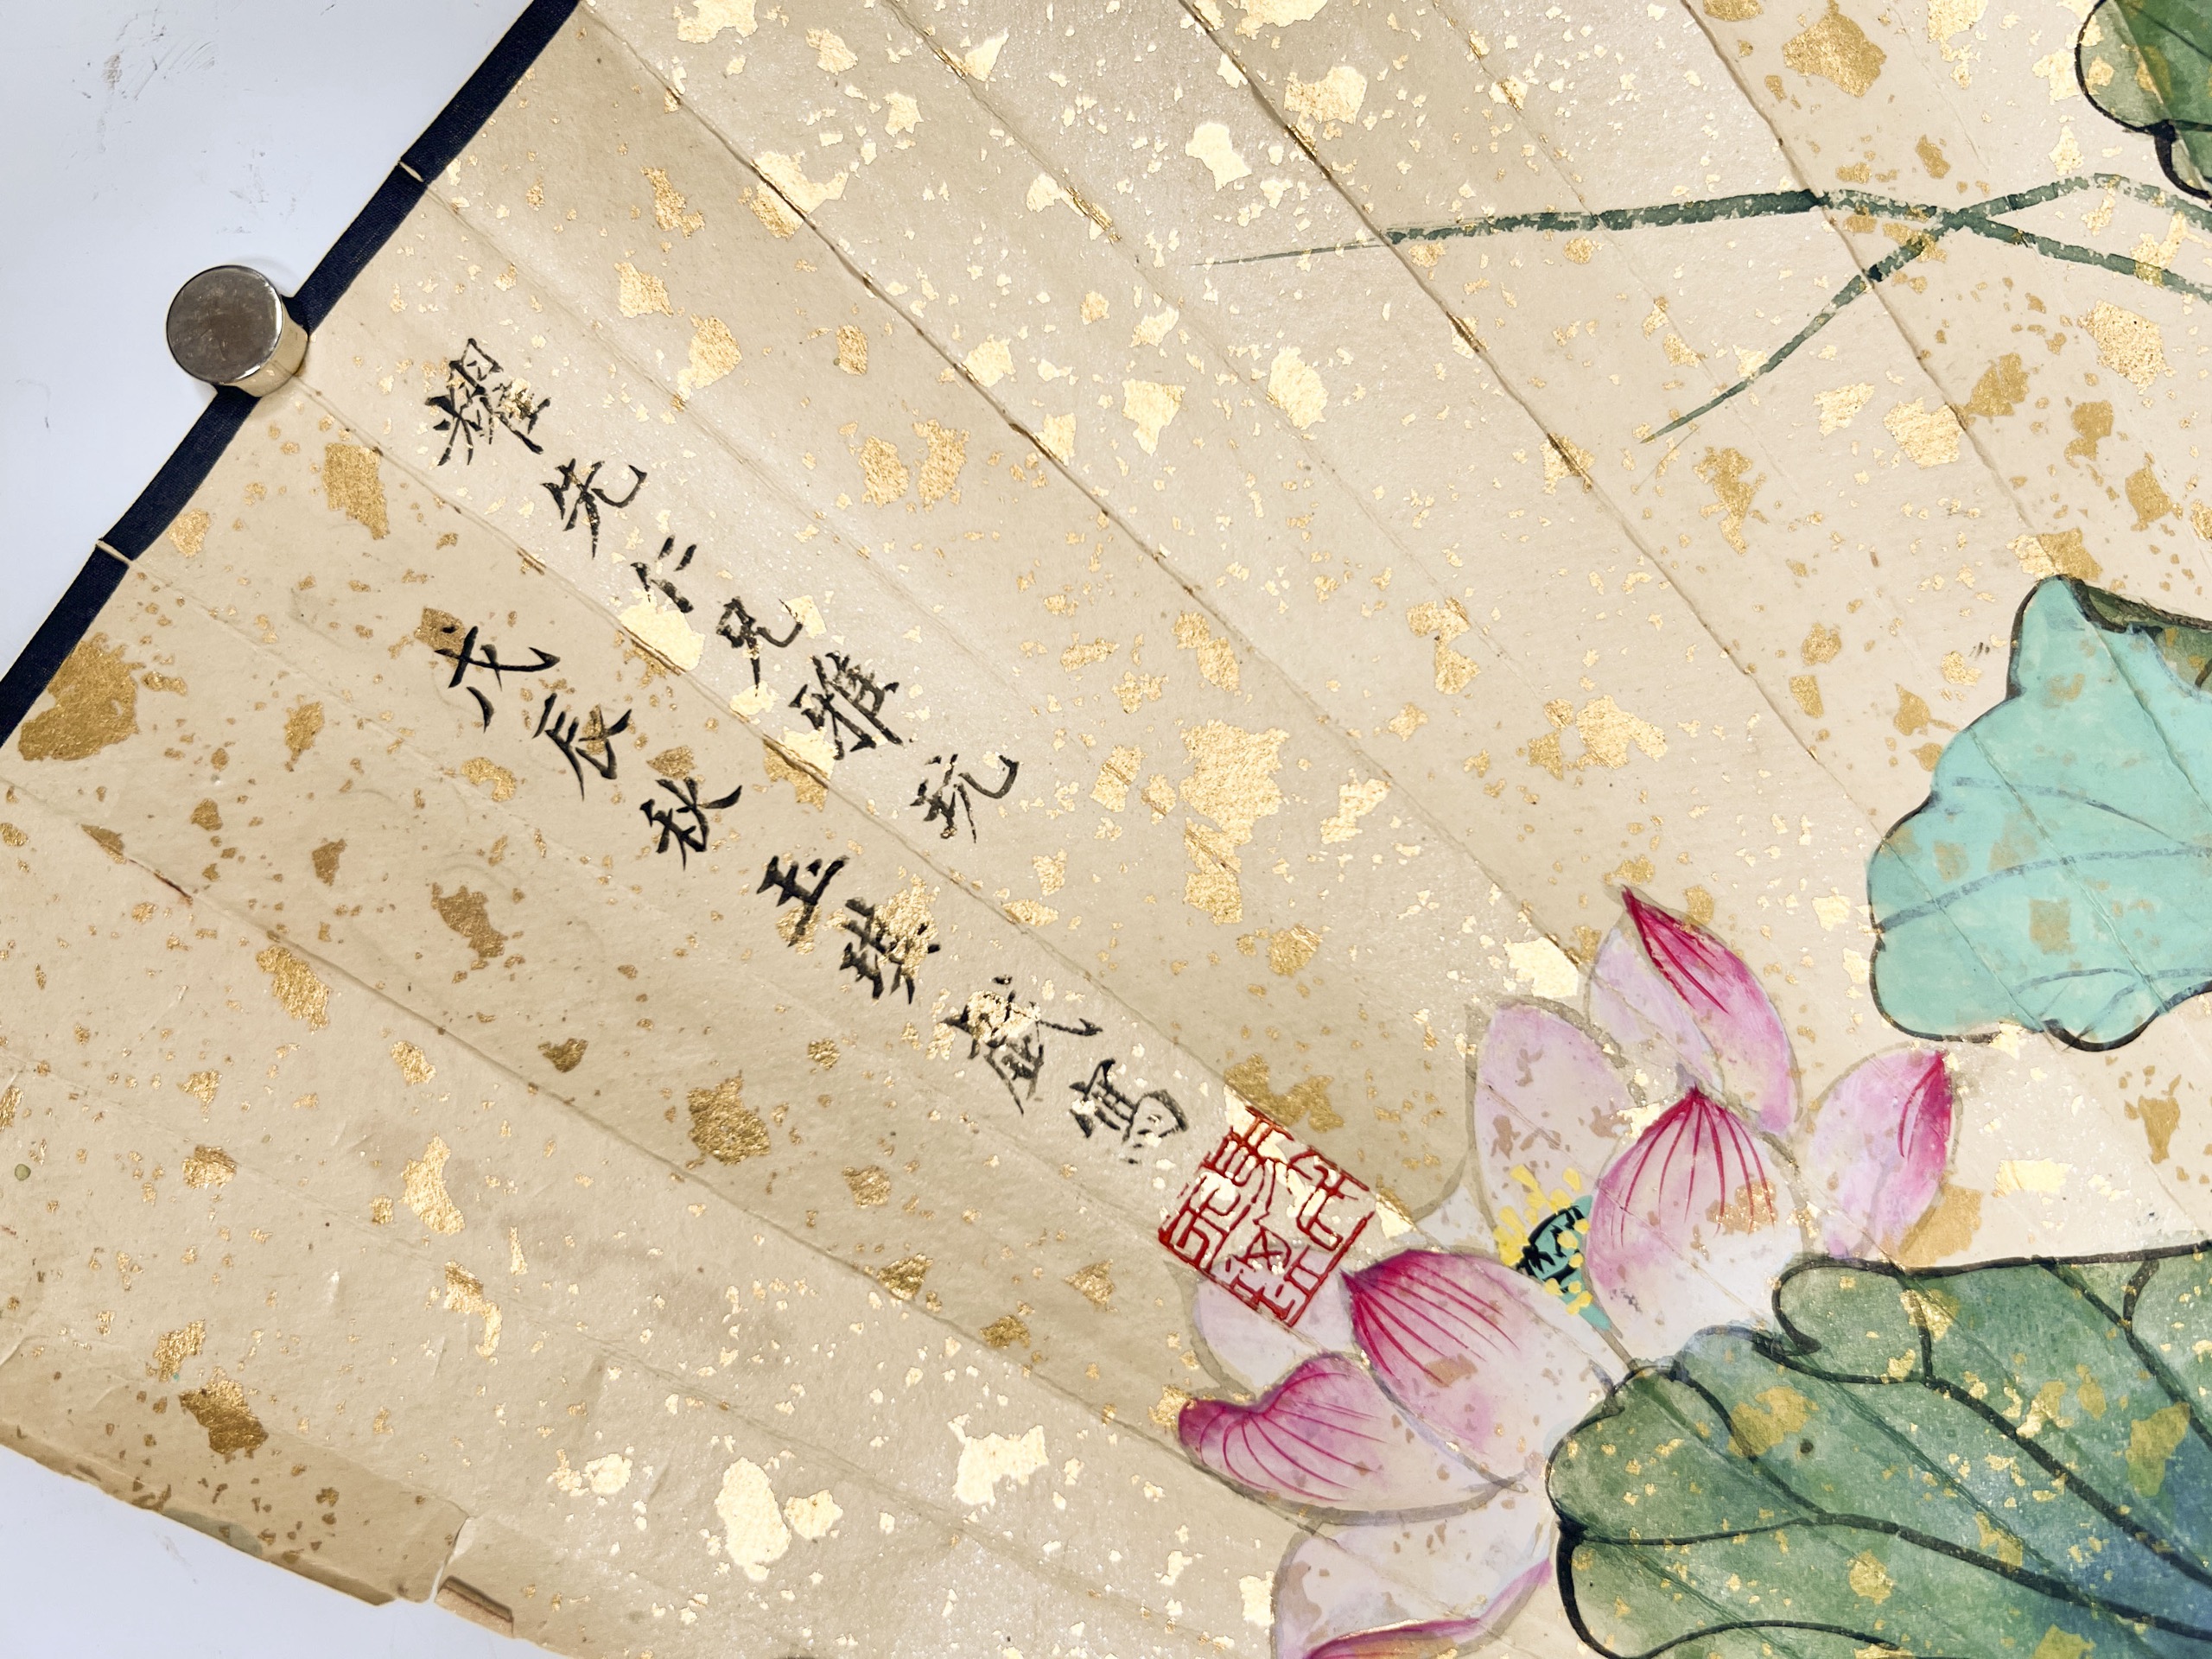 耀先仁兄雅玩
戊辰秋玉琪戲寫